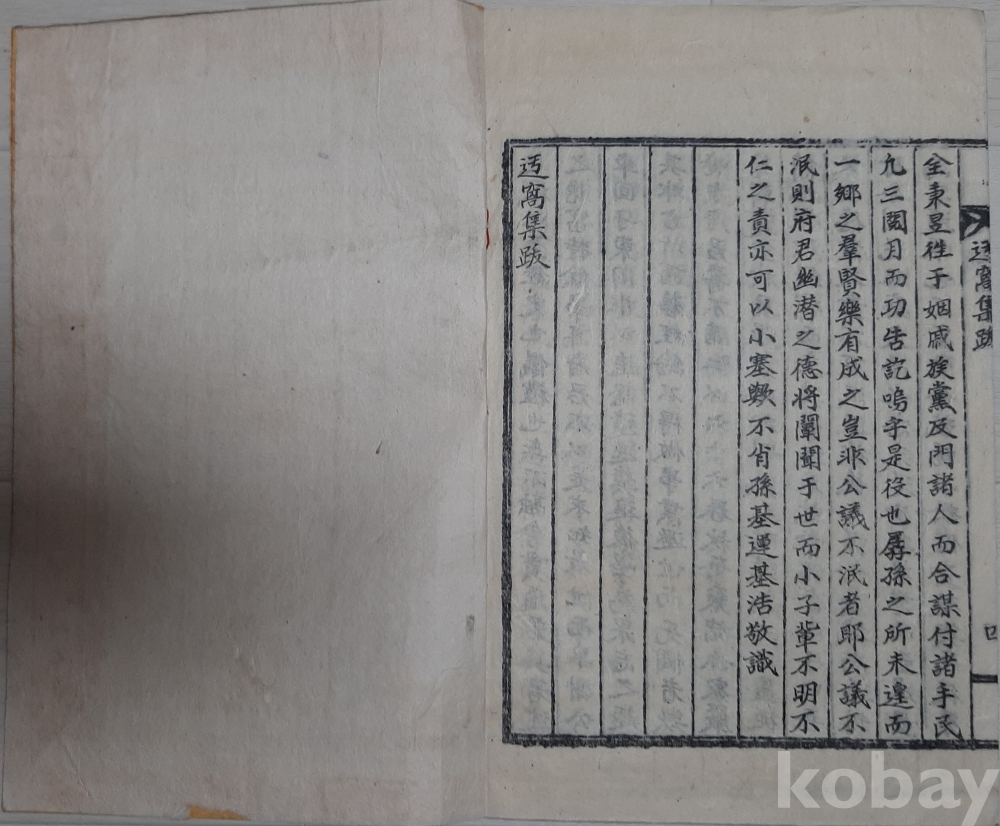 迃窩集跋
四
全秉昱徃于姻戚族黨及門諸人而合謀付諸手民
凡三閱月而功告訖嗚乎是役也孱孫之所未遑而
一鄉之羣賢樂有成之豈非公議不泯者耶公議不
泯則府君幽潛之德將闡聞于世而小子輩不明不
仁之責亦可以小塞歟不肖孫基運基浩敬識
迃窩集跋
kobay